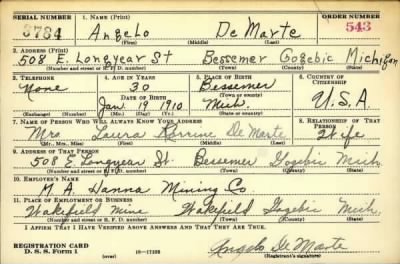 SERIAL NUMBER 1. NAME (Print) ORDER NUMBER
3734 Angelo De Marte 543
(First) (Middle) (Last)
2. ADDRESS (Print)
508 E. Longyear St Bessemer Gogebic Michigan
(Number and street or R. F. D. number) (Town) (County) (State)
3. TELEPHONE 4. AGE IN YEARS 5. PLACE OF BIRTH 6. COUNTRY OF CITIZENSHIP
None 30 Bessemer
DATE OF BIRTH (Town or county)
Jan 19 1910 Mich. U.S.A.
(Exchange) (Number) (Mo.) (Day) (Yr.) (State or country)
7. NAME OF PERSON WHO WILL ALWAYS KNOW YOUR ADDRESS 8. RELATIONSHIP OF THAT PERSON
Mrs Laura De Marte Wife
(Mr., Mrs., Miss) (First) (Middle) (Last)
9. ADDRESS OF THAT PERSON
508 E Longyear St. Bessemer Gogebic Mich.
(Number and street or R. F. D. number) (Town) (County) (State)
10. EMPLOYER'S NAME
M. A. Hanna Mining Co.
11. PLACE OF EMPLOYMENT OR BUSINESS
Wakefield Mine Wakefield Gogebic Mich.
(Number and street or R. F. D. number) (Town) (County) (State)
I AFFIRM THAT I HAVE VERIFIED ABOVE ANSWERS AND THAT THEY ARE TRUE.
REGISTRATION CARD Angelo De Marte
D. S. S. Form 1 (over) (Registrant's signature)